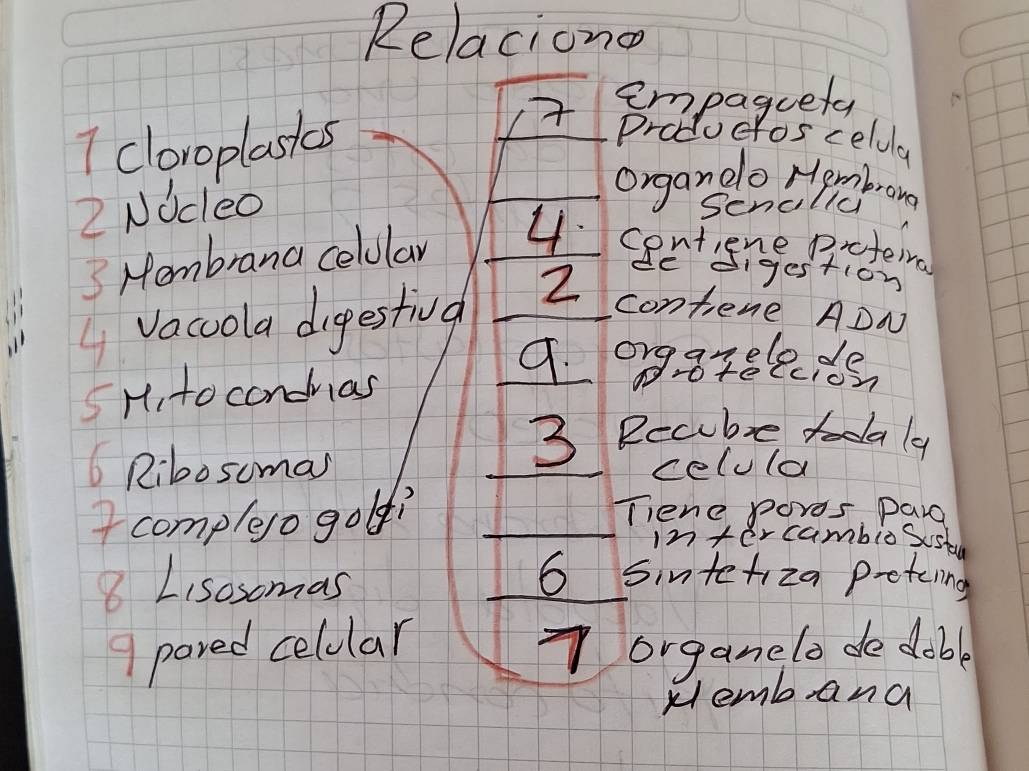 Relaciono
1 cloroplastos
2 Núcleo
3 Membrana celular
4 vacuola digestiva
5 Mitocondrias
6 Ribosomas
7 complejo golgi
8 Lisosomas
9 pared celular
7 Empaqueta
Productos celula
organelo Membrana
Sencilla
4. contiene Proteina
de digestion
2 contiene ADN
9. organelo de
protección
3 Recubre toda la
celula
Tiene poros para
intercambio
6 Sintetiza proteinas
1 organelo de doble
Membrana